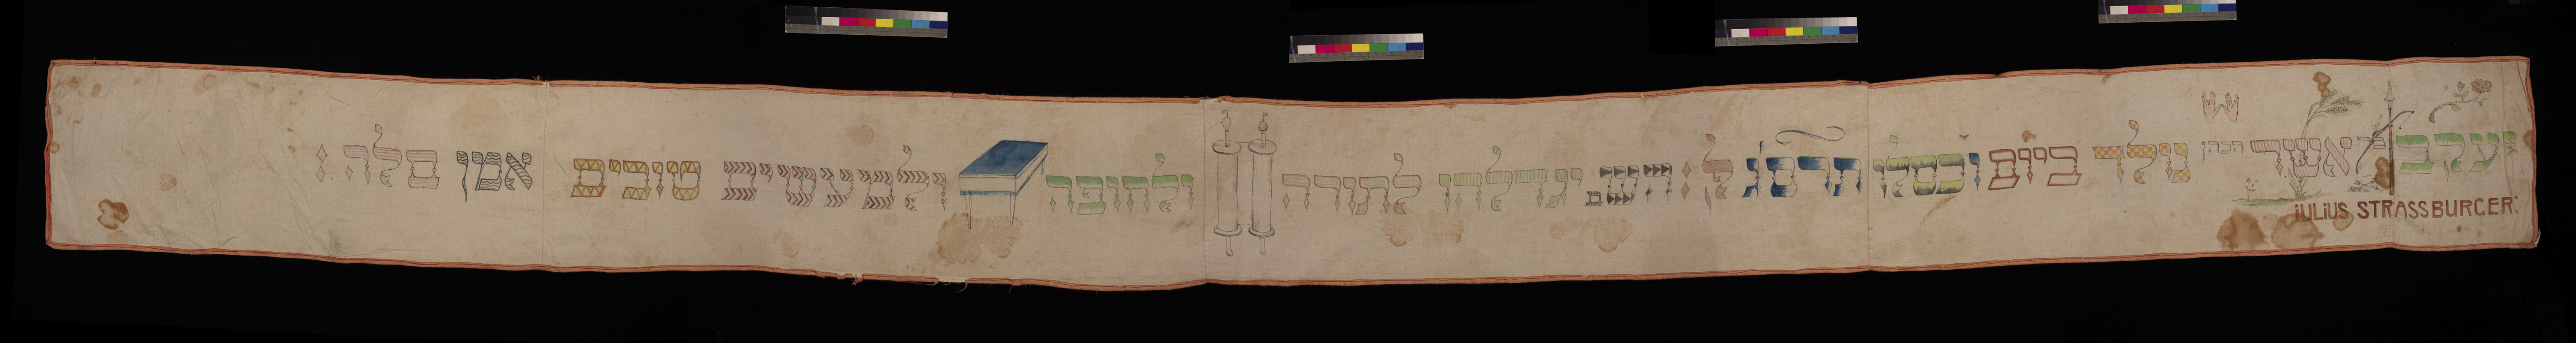 יעקב בר אשר הכהן נולד ביום ו כסלו תרפג ל: השם יגדלהו לתורה ולחופה ולמעשים טובים אמן סלה:
iULiUS STRASSBURGER: